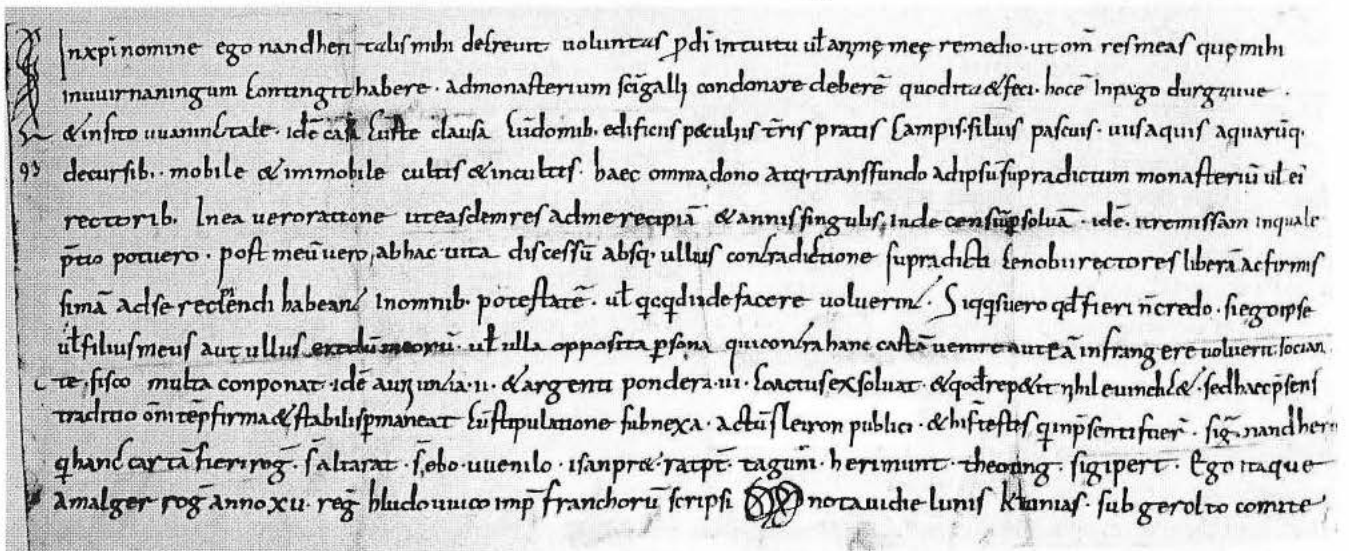 Inxpi nomine ego nandheri talis mihi decreuit uoluntas p dī intuitu ul̄ animę meę remedio · ut om̄ res meas quę mihi
in uuirnaningum contingit habere · ad monasterium sc̄i galli condonare deberē quod ita & feci · hoc ē In pago durgauue ·
& in sito uuaninctale · id ē casa curte clausa cum domib. edificiis peculiis t̄ris pratis campis · siluis pascuis · uiis aquis aquarūq.
decursib. · mobile & immobile cultis & incultis · haec omnia dono atq· transfundo ad ipsū supradictum monasteriū ul̄ ei
rectorib. In ea uero ratione ut easdem res ad me recipiā & annis singulis, inde censum psoluā · id ē · i tremissam in quale
p̄tio potuero · post meū uero, ab hac uita discessū absq. ullius contradictione supradicti cenobii rectores liberā ac firmis
simā ad se recipiendi habeant In omnib. potestatē · ul̄ qcqd inde facere uoluerint. Siqs uero qd̄ fieri n̄ credo · si ego ipse
ul̄ filius meus aut ullus meorū · ul̄ ulla opposita psona qui contra hanc cartā uenire aut eā infrangere uoluerit socian
te, fisco multa conponat · id ē auri uncia · ii · & argenti pondera · iii · coactus exsoluat · & qod rep&it nihil euindic& · sed haec p̄sens
traditio om̄i tēp firma & stabilis pmaneat cū stipulatione subnexa · actū leiron publici · & hi s̄ testes q inp̄senti fuer̄ · sig̅ · nandheri
q hanc cartā fieri rog̅ · s̄ altarat · s̄ obo · uuenilo · isanpr& · ratpt̄ · tagum̄ · herimunt · theoting · sigipert · Ego itaque
amalger rog̅ anno xu · reg̅ hludouuico imp̄ franchorū scripsi notaui die lunis kl iunias · sub gerolto comite